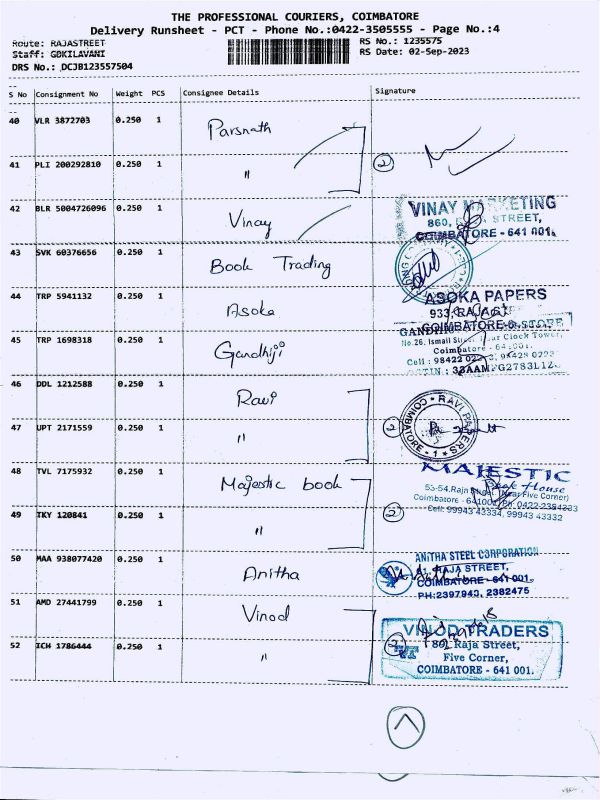 THE PROFESSIONAL COURIERS, COIMBATORE
Delivery Runsheet - PCT - Phone No.:0422-3505555 - Page No.:4
Route: RAJASTREET
RS No.: 1235575
Staff: GOKILAVANI
RS Date: 02-Sep-2023
DRS No.: DCJB123557504
S No Consignment No Weight PCS Consignee Details Signature
40 VLR 3872703 0.250 1 Parsnath
41 PLI 200292810 0.250 1 " 2
42 BLR 5004726096 0.250 1 Vinay
VINAY MARKETING
STREET,
COIMBATORE - 641 001.
43 SVK 60376656 0.250 1 Book Trading
44 TRP 5941132 0.250 1 Asoka
ASOKA PAPERS
COIMBATORE
45 TRP 1698318 0.250 1 Gandhiji
STORE
No.26, Ismail Clock Tower,
Coimbatore - 641001.
46 DDL 1212588 0.250 1 Ravi
47 UPT 2171559 0.250 1 " 2
RAVI PAPERS
COIMBATORE - 1
48 TVL 7175932 0.250 1 Majestic book
MAJESTIC
Book House
53-54, Raja (Near Five Corner)
Coimbatore - 641001, Ph: 0422-2384333
Cell: 99943 43334, 99943 43332
49 TKY 120841 0.250 1 " 2
50 MAA 938077420 0.250 1 Anitha
ANITHA STEEL CORPORATION
RAJA STREET,
COIMBATORE - 641 001.
PH:2397943, 2382475
51 AMD 27441799 0.250 1 Vinod
52 ICH 1786444 0.250 1 " 2
VINOD TRADERS
Raja Street,
Five Corner,
COIMBATORE - 641 001.